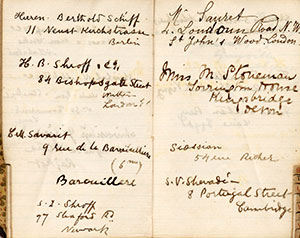 Herrn. Berthold Schiff
11 Neust Kirchstrasse
Berlin
H. B. Shroff
84 Bishopsgate Street
Within
London
C. M. Savarit
9 rue de la Barouillere
(6me)
Barouillere
S. I. Shroff
77 Road
Newark
Mr Sauret
Road N.W.
St John's Wood, London
Miss M Stoneman
House
Kingsbridge
Devon
Siassian
54 rue
S. V. Shevade
8 Portugal Street
Cambridge